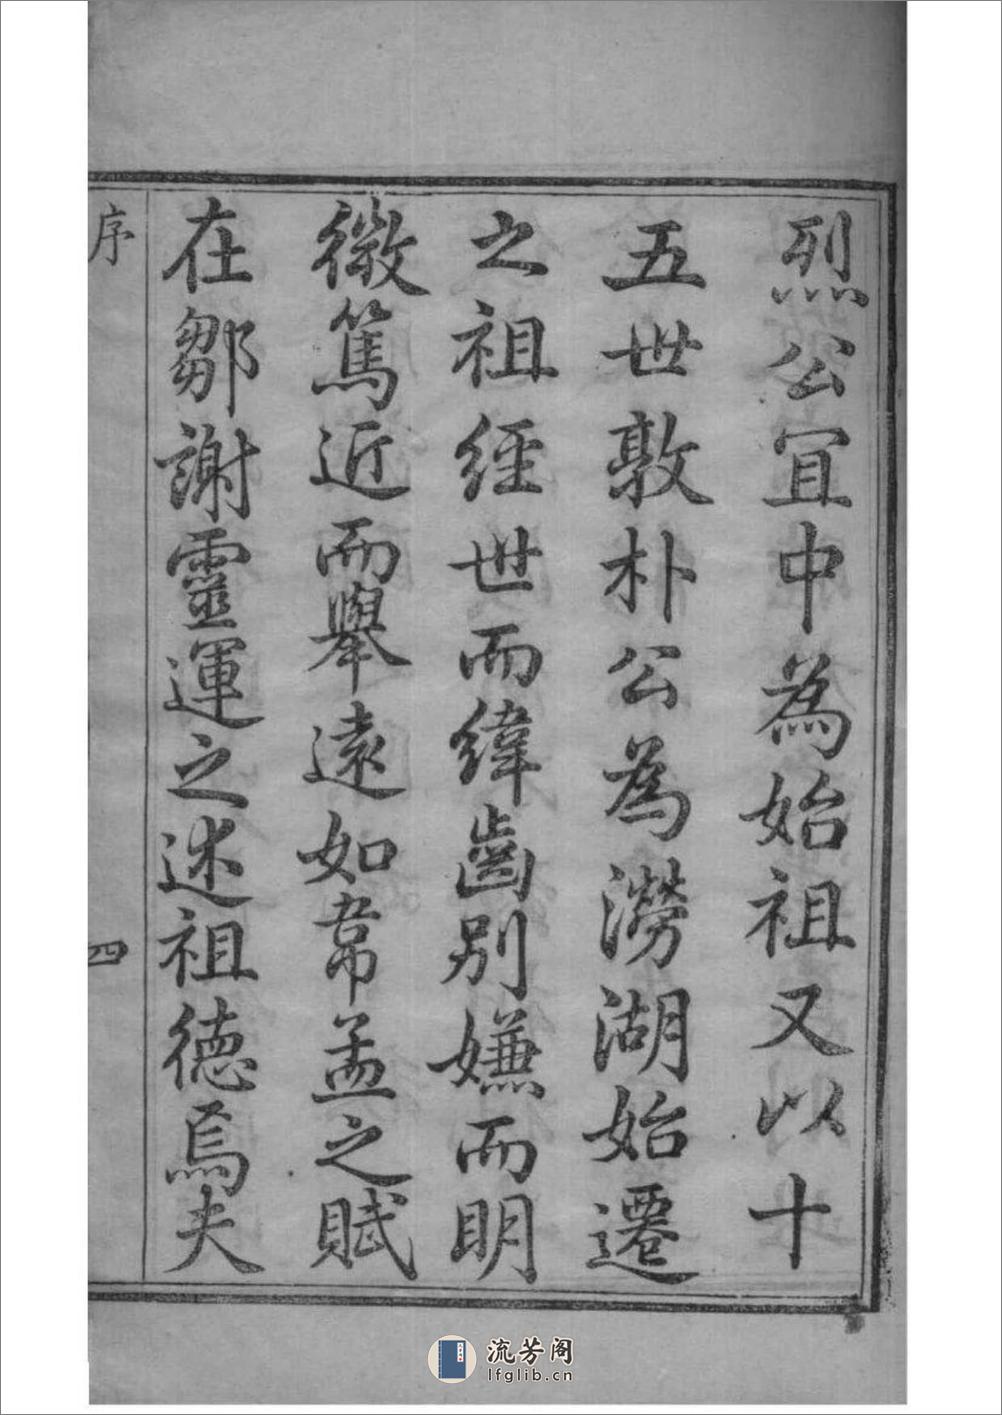 烈公冝中為始祖又以十
五世敦朴公為澇湖始遷
之祖經世而緯齒別嫌而明
徴篤近而舉遠如韋孟之賦
在鄒謝靈運之述祖德焉夫
序
四
流芳阁
lfglib.cn